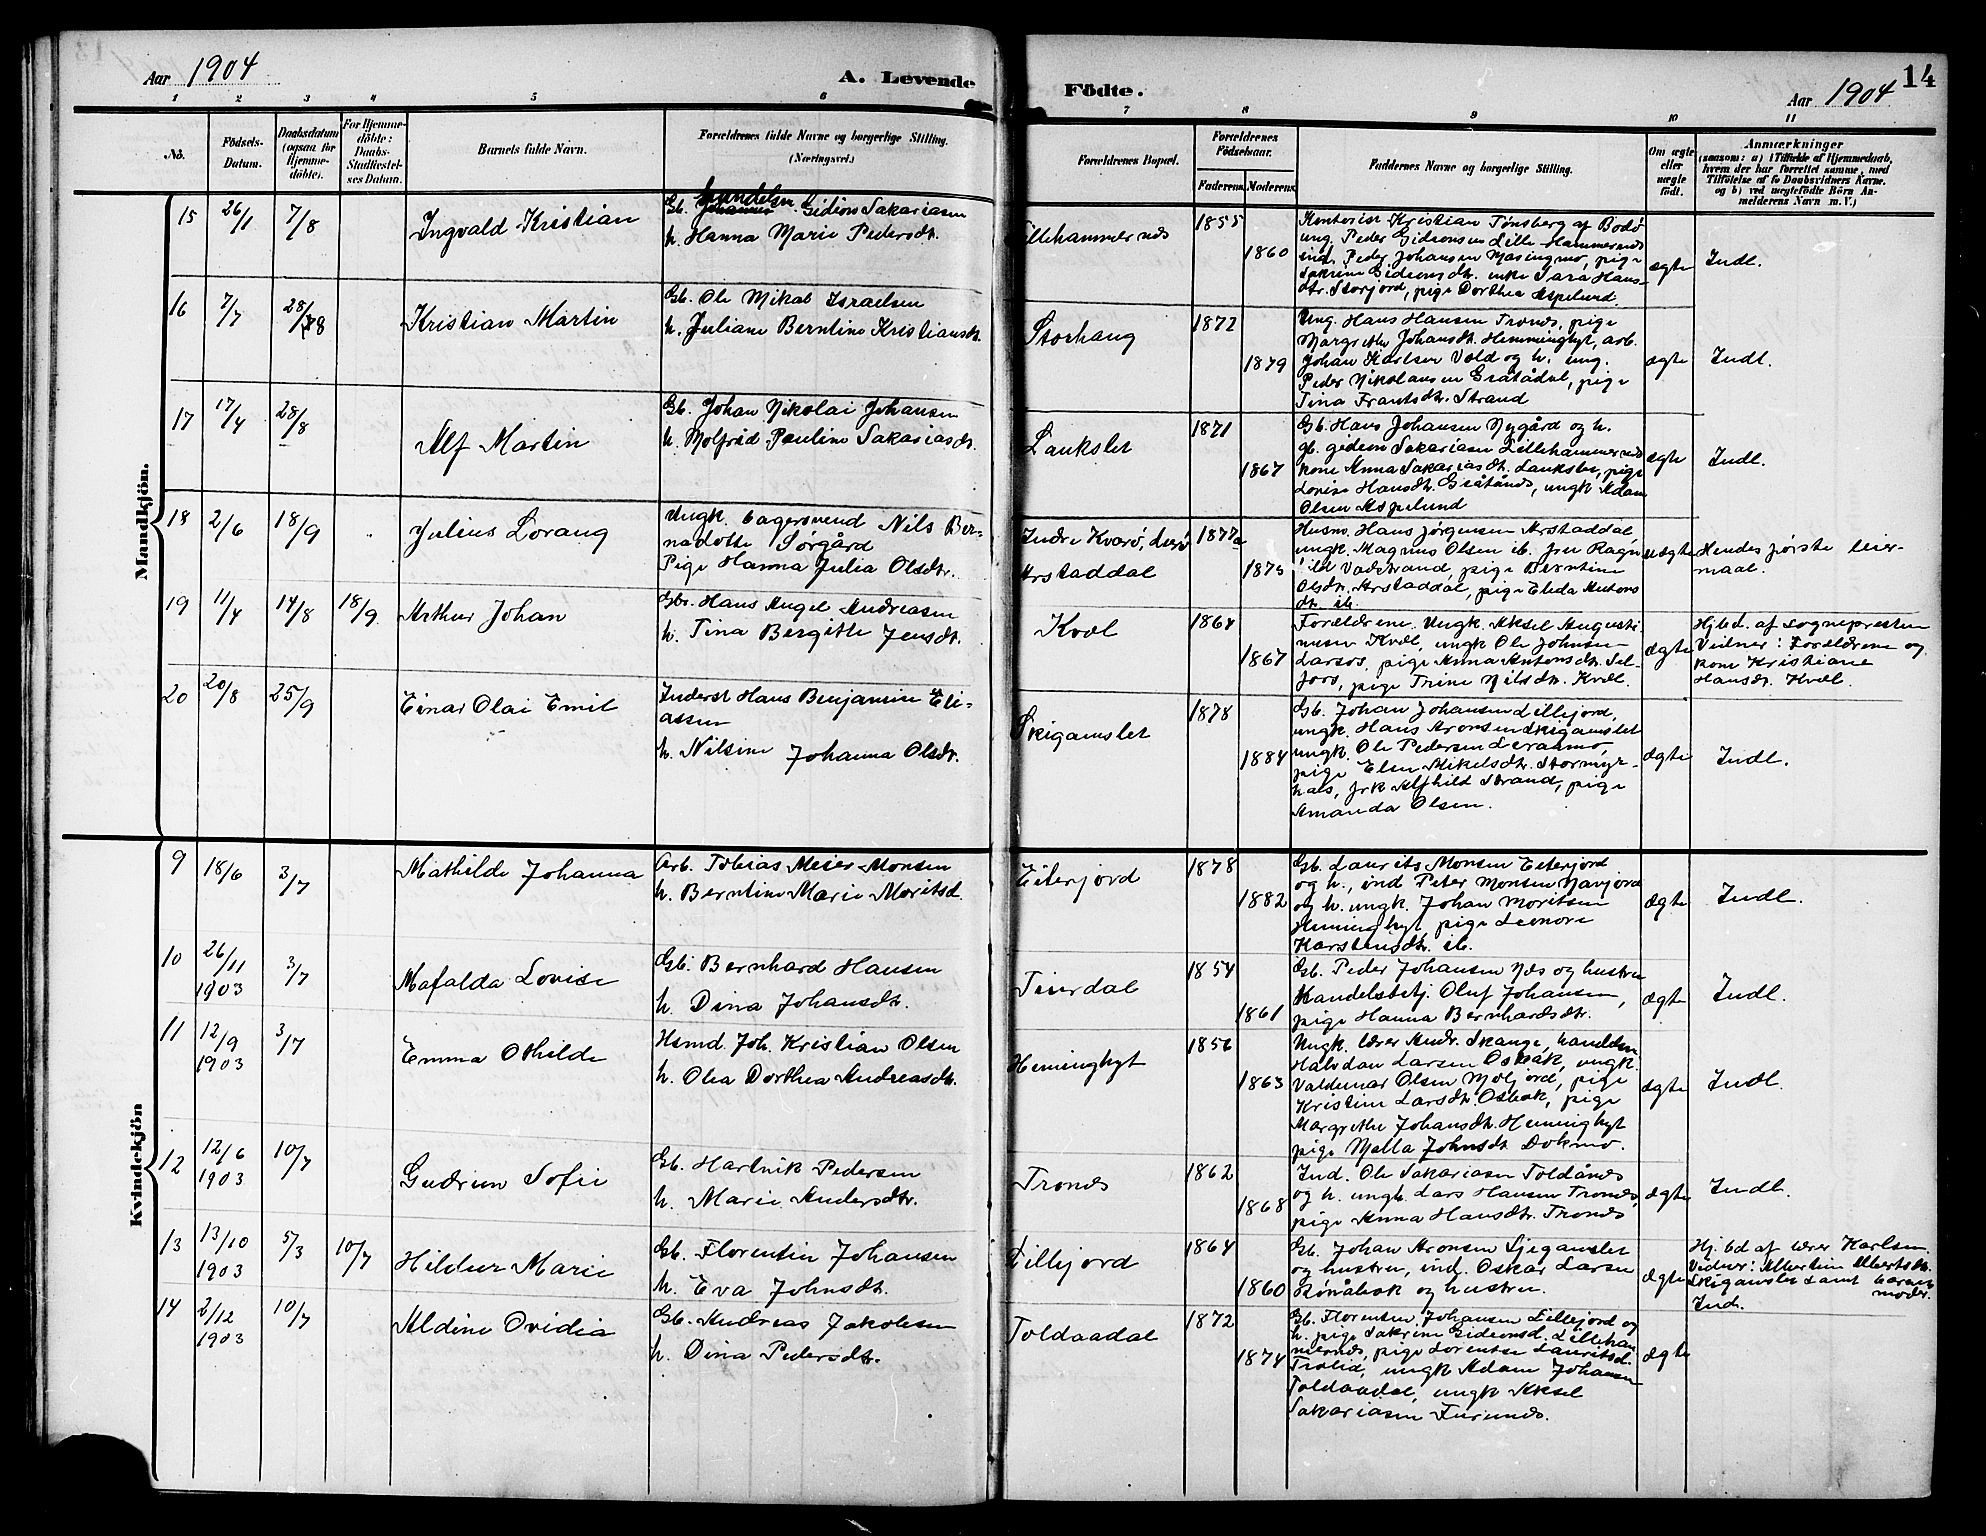 Aar 1904
A. Levende
Födte.
Aar 1904
14
1 2 3 4 5 6 7 8 9 10 11
No.
Födsels-
Datum.
Daabsdatum
(ogsaa for
Hjemme-
döbte).
For Hjemme-
döbte:
Daabs-
Stadfæstel-
ses Datum.
Barnets fulde Navn.
Forældrenes fulde Navne og borgerlige Stilling.
(Næringsvei.)
Forældrenes Bopæl.
Forældrenes
Födselsaar.
Faderens. Moderens.
Faddernes Navne og borgerlige Stilling.
Om ægte
eller
uægte
födt.
Anmærkninger
(saasom: a) i Tilfælde af Hjemmedaab,
hvem der har forrettet samme, med
Tilföielse af to Daabsvidners Navne.
og b) ved uægtefödte Börn An-
melderens Navn m. V.)
Mandkjön.
15 26/1 7/8
Ingvald Kristian
Gb. Gideon Sakariasen
h. Hanna Marie Pedersdt.
Lillehammernes
1855
1860
Kontorist Kristian Tønsberg af Bodø
ung. Peder Gideonsen Lille-Hammernes
ind. Peder Johansen Masingmo, pige
Sakrine Gideonsdt. enke Sara Hans-
dtr. Storjord, pige Dorthea Aspelund.
ægte
Indl.
16 7/7 28/8
Kristian Martin
Gb. Ole Mikal Israelsen
h. Juliane Berntine Kristiansdt.
Storhaug
1872
1879
Ung. Hans Hansen Trones, pige
Margrethe Johansdt. Hemminghyt, arb.
Johan Karlsen Vold og h. ung.
Peder Nikolausen Gråtådal, pige
Tina Frantsdt. Strand
ægte
Indl.
17 17/4 28/8
Alf Martin
Gb. Johan Nikolai Johansen
h. Molfrid Pauline Sakariasdt.
Laukslet
1871
1867
Gb. Hans Johansen Nygård og h.
gb. gideon Sakariasen Lillehammernes
kone Anna Sakariasdt. Laukslet, pige
Lovise Hansdt. Gråtånes, ungk Adam
Olsen Aspelund
ægte
Indl.
18 2/6 18/9
Julius Lorang
Ungk. bagersvend Nils Ber-
nadotte Sørgård
Pige Hanna Julia Olsdtr.
Indre Kvarø, Lurø
Arstaddal
1877
1875
Husm. Hans Jørgensen Arstaddal,
ungk. Magnus Olsen ib. fru Ragn
ild Vadstrand, pige Berntine
Olsdt. Arstaddal, pige Eleda Antons
dt. ib.
uægte
Hendes første leier-
maal.
19 11/4 14/8 18/9
Arthur Johan
Gbr. Hans Angel Andreasen
h. Tina Bergitte Jensdt.
Kvæl
1864
1867
Forældrene. Ungk. Aksel Augusti-
nusen Kvæl, ungk Ole Johnsen
Larsos, pige Anna Antonsdt. Sel-
fors, pige Trine Nilsdt. Kvæl.
ægte
Hjbd. af sognepresten
Vidner: Forældrene og
kone Kristiane
Hansdt. Kvæl.
20 20/8 25/9
Einar Olai Emil
Inderst Hans Benjamin Eli-
assen
h. Nilsine Johanna Olsdt.
Skigamslet
1878
1884
Gb. Johan Johansen Lillejord,
ungk. Hans Aronsen Skigamslet
ungk. Ole Pedersen Leraamo,
pige Elen Mikelsdt. Stormyr-
hals, frk Alfhild Strand, pige
Amanda Olsen.
ægte
Indl.
Kvindekjön
9 18/6 3/7
Mathilde Johanna
Arb. Tobias Meier Monsen
h. Berntine Marie Moritsd.
Eiterjord
1878
1882
Gb. Laurits Monsen Eiterjord
og h., ind Peter Monsen Navjord
og h. ungk. Johan Moritsen
Heminghyt, pige Leonore
Karstensdt. ib.
ægte
Indl.
10 26/11 1903 3/7
Mafalda Lovise
Gb. Bernhard Hansen
h. Dina Johansdt.
Tverdal
1854
1861
Gb. Peder Johansen Næs og hustru
Handelsbetj. Oluf Johansen,
pige Hanna Bernhardsdtr.
ægte
Indl.
11 12/9 1903 3/7
Emma Othilde
Hsmd. Joh. Kristian Olsen
h. Olea Dorthea Andreasdt.
Heminghyt
1856
1863
Ungk. lærer Andr. Skauge, handelsm
Halvdan Larsen Osbak, ungk.
Valdemar Olsen Moljord, pige
Kristine Larsdt. Osbak, pige
Margrethe Johansdt. Heminghyt
pige Nella Johnsdt Dokmo.
ægte
Indl.
12 12/6 1903 10/7
Gudrun Sofie
Gb. Hartvik Pedersen
h. Marie Andersdtr.
Trones
1862
1868
Ind. Ole Sakariasen Toldånes
og h. ungk. Lars Hansen Trones,
pige Anna Hansdtr. Trones
ægte
Indl.
13 13/10 1903 5/3 10/7
Hildur Marie
Gb. Florentin Johansen
h. Eva Johnsdt.
Lillejord
1864
1860
Gb. Johan Aronsen Sjegamslet
og hustru, ind. Oskar Larsen
Rønåbak og hustru.
ægte
Hj.bd af lærer Karlsen.
Vidner: Albertine Albertsdt.
Skigamslet samt barnets
moder.
Ind.
14 2/12 1903 10/7
Aldine Ovidia
Gb. Andreas Jakobsen
h. Dina Pedersdt.
Toldaadal
1872
1874
Gb. Florentin Johansen Lillejord og
h. pige Sakrine Gideonsd. Lilleham
mernes, pige Lorentse Lauritsd.
Trolid, ungk Adam Johansen
Toldaadal, ungk Aksel
Sakariasen Furunes.
ægte